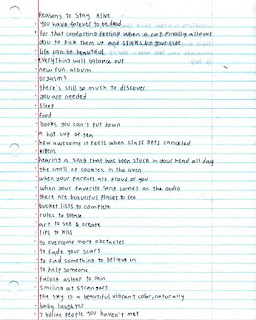 Reasons to Stay Alive
you have forever to be dead
for that comforting feeling when a cat finally allows
you to pick them up and sticks by your side
life can be beautiful
everything will balance out
new fun. album
orgasms
there's still so much to discover
you are needed
sleep
food
books you can't put down
a hot cup of tea
how awesome it feels when class gets canceled
kittens
hearing a song that has been stuck in your head all day
the smell of cookies in the oven
when your parents are proud of you
when your favorite song comes on the radio
there are beautiful places to see
bucket lists to complete
rules to break
art to see & create
lips to kiss
to overcome more obstacles
to fade your scars
to find something to believe in
to help someone
falling asleep to rain
smiling at strangers
the sky is a beautiful vibrant color, naturally
baby laughter
7 billion people you haven't met